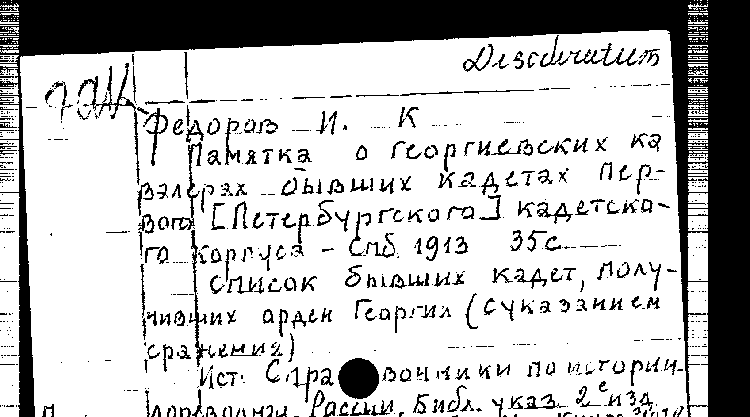 Desideratum
Федоров И. К
Памятка о георгиевских ка
валерах бывших кадетах Пер-
вого [Петербургского] кадетско-
го корпуса – Спб. 1913 35с
Список бывших кадет, полу-
чивших орден Георгия (с указанием
сражения)
Ист. Справочники по истории
России, Библ. указ. 2е изд